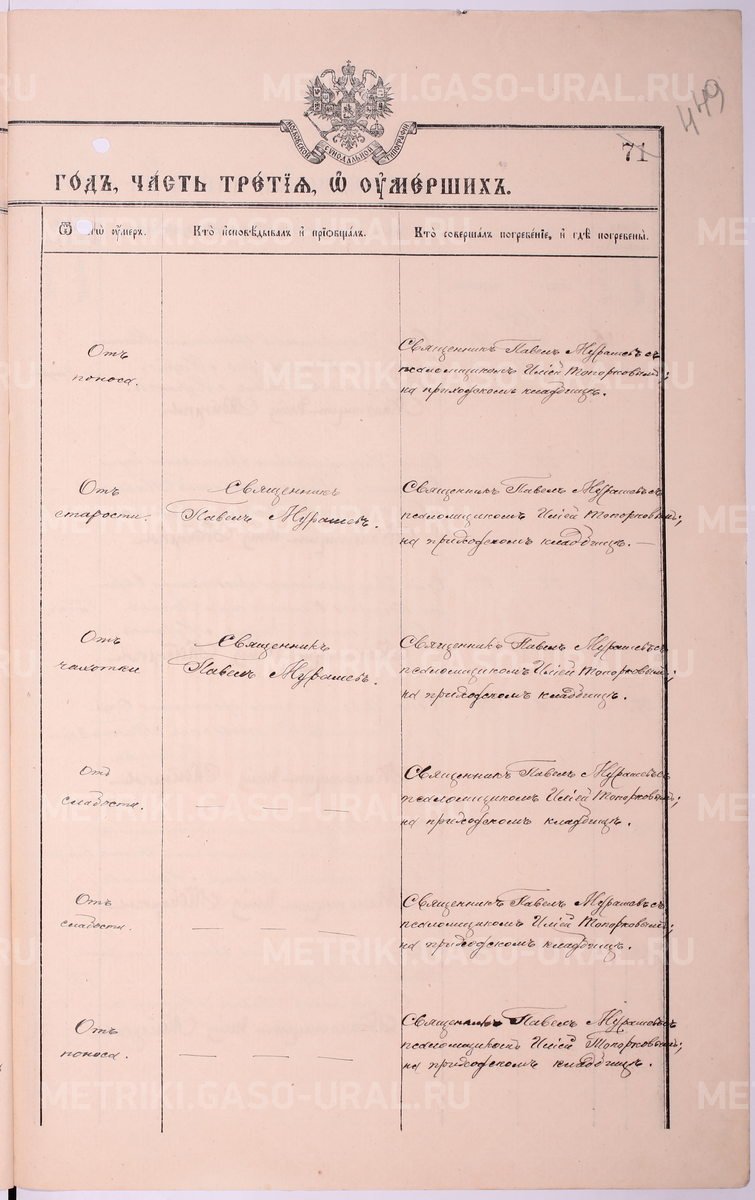 449
МОСКОВСКОЙ СѴНОДАЛЬНОЙ ТИПОГРАФІИ
71
ГОДЪ, ЧАСТЬ ТРЕТІЯ, Ѿ ОУМЕРШИХЪ.
Ѿ чегѡ оумеръ.
Кто исповѣдывалъ и пріобщалъ.
Кто совершалъ погребеніе, и гдѣ погребены.
Отъ
поноса.
Священникъ Павелъ Мурашевъ съ
псаломщикомъ Топорковымъ;
на приходскомъ кладбищѣ.
Отъ
старости.
Священникъ
Павелъ Мурашевъ.
Священникъ Павелъ Мурашевъ съ
псаломщикомъ Топорковымъ;
на приходскомъ кладбищѣ. —
Отъ
чахотки
Священникъ
Павелъ Мурашевъ.
Священникъ Павелъ Мурашевъ съ
псаломщикомъ Топорковымъ;
на приходскомъ кладбищѣ.
Отъ
слабости.
— — —
Священникъ Павелъ Мурашевъ съ
псаломщикомъ Топорковымъ;
на приходскомъ кладбищѣ.
Отъ
слабости.
— — —
Священникъ Павелъ Мурашевъ съ
псаломщикомъ Топорковымъ;
на приходскомъ кладбищѣ.
Отъ
поноса.
— — —
Священникъ Павелъ Мурашевъ съ
псаломщикомъ Топорковымъ;
на приходскомъ кладбищѣ.
METRIKI.GASO-URAL.RU